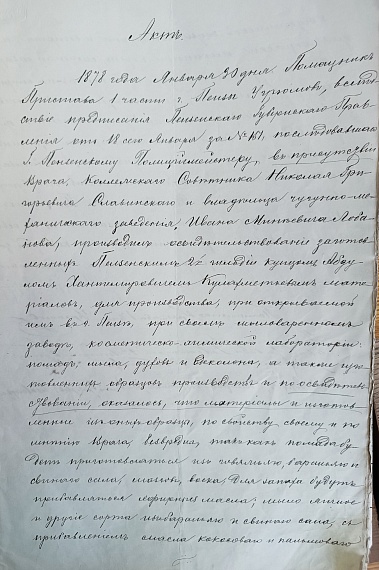 Актъ
1878 года Января 30 дня Помощникъ
Пристава 1 части г. Пензы Угрюмовъ, вслѣд
ствіе предписанія Пензенскаго Губернскаго Прав
ленія отъ 18 сего Января за № 151, послѣдовавшаго
г. Пензенскому Полиціймейстеру, въ присутствіи
Врача, Коллежскаго Совѣтника Николая Гри
горьевича Славинскаго и владѣльца чугунно-ме
ханическаго заведенія, Ивана
производилъ освидѣтельствованіе загото
вленныхъ Пензенскимъ 2й гильдіи купцомъ Абду
ломъ мате
ріаловъ, для производства, при открываемой
имъ въ г. Пензѣ, при своемъ мыловаренномъ
заводѣ, косметическо-химической лабораторіи:
помады, мыла, духовъ и одеколона, а также изго
товленныхъ образцовъ производствъ и по освидѣтель
ствованіи, оказалось, что матеріалы и изготов
ленные изъ нихъ образцы, по свойству своему и по
мнѣнію Врача, безвредны, такъ какъ помада бу
детъ приготовляться изъ говяжьяго, бараньяго и
свинаго сала, воска. Для запаха будутъ
прибавляться эфирныя масла; мыло
и другіе сорта изъ бараньяго и свинаго сала, съ
прибавленіемъ масла кокосоваго и пальмоваго